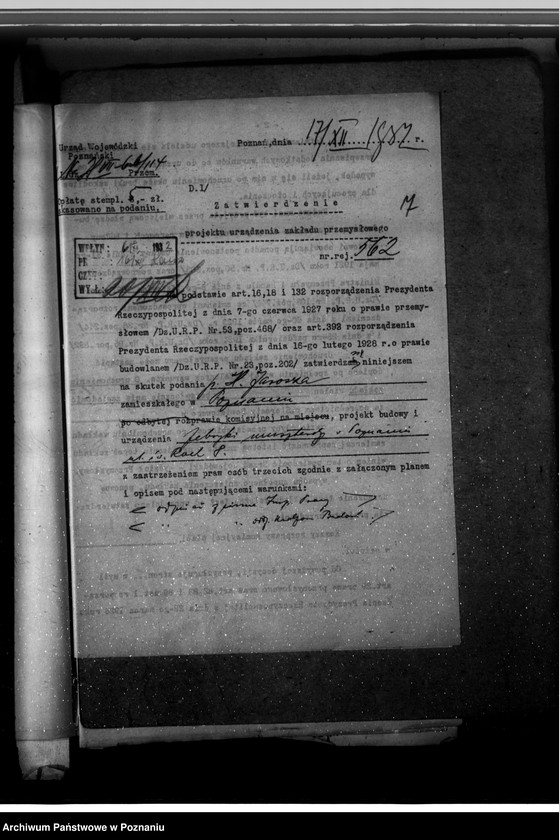 Urząd Wojewódzki
Poznański
Przem.
Poznań, dnia 17/XII 1932 r.
Opłatę stempl. 5,- zł.
skasowano na podaniu.
D.1/
Zatwierdzenie
7
projektu urządzenia zakładu przemysłowego
nr.rej. 562
WPŁYN:
podstawie art.16,18 i 132 rozporządzenia Prezydenta
Rzeczypospolitej z dnia 7-go czerwca 1927 roku o prawie przemy-
słowem /Dz.U.R.P. Nr.53,poz.468/ oraz art.393 rozporządzenia
Prezydenta Rzeczypospolitej z dnia 16-go lutego 1928 r.o prawie
budowlanem /Dz.U.R.P. Nr.23,poz.202/ zatwierdza niniejszem
na skutek podania p.
zamieszkałego w Poznaniu
po odbytej rozprawie komisyjnej na miejscu, projekt budowy i
urządzenia fabryki musztardy w Poznaniu
z zastrzeżeniem praw osób trzecich zgodnie z załączonym planem
i opisem pod następującemi warunkami:
odpis z pisma Insp. Pracy
Archiwum Państwowe w Poznaniu